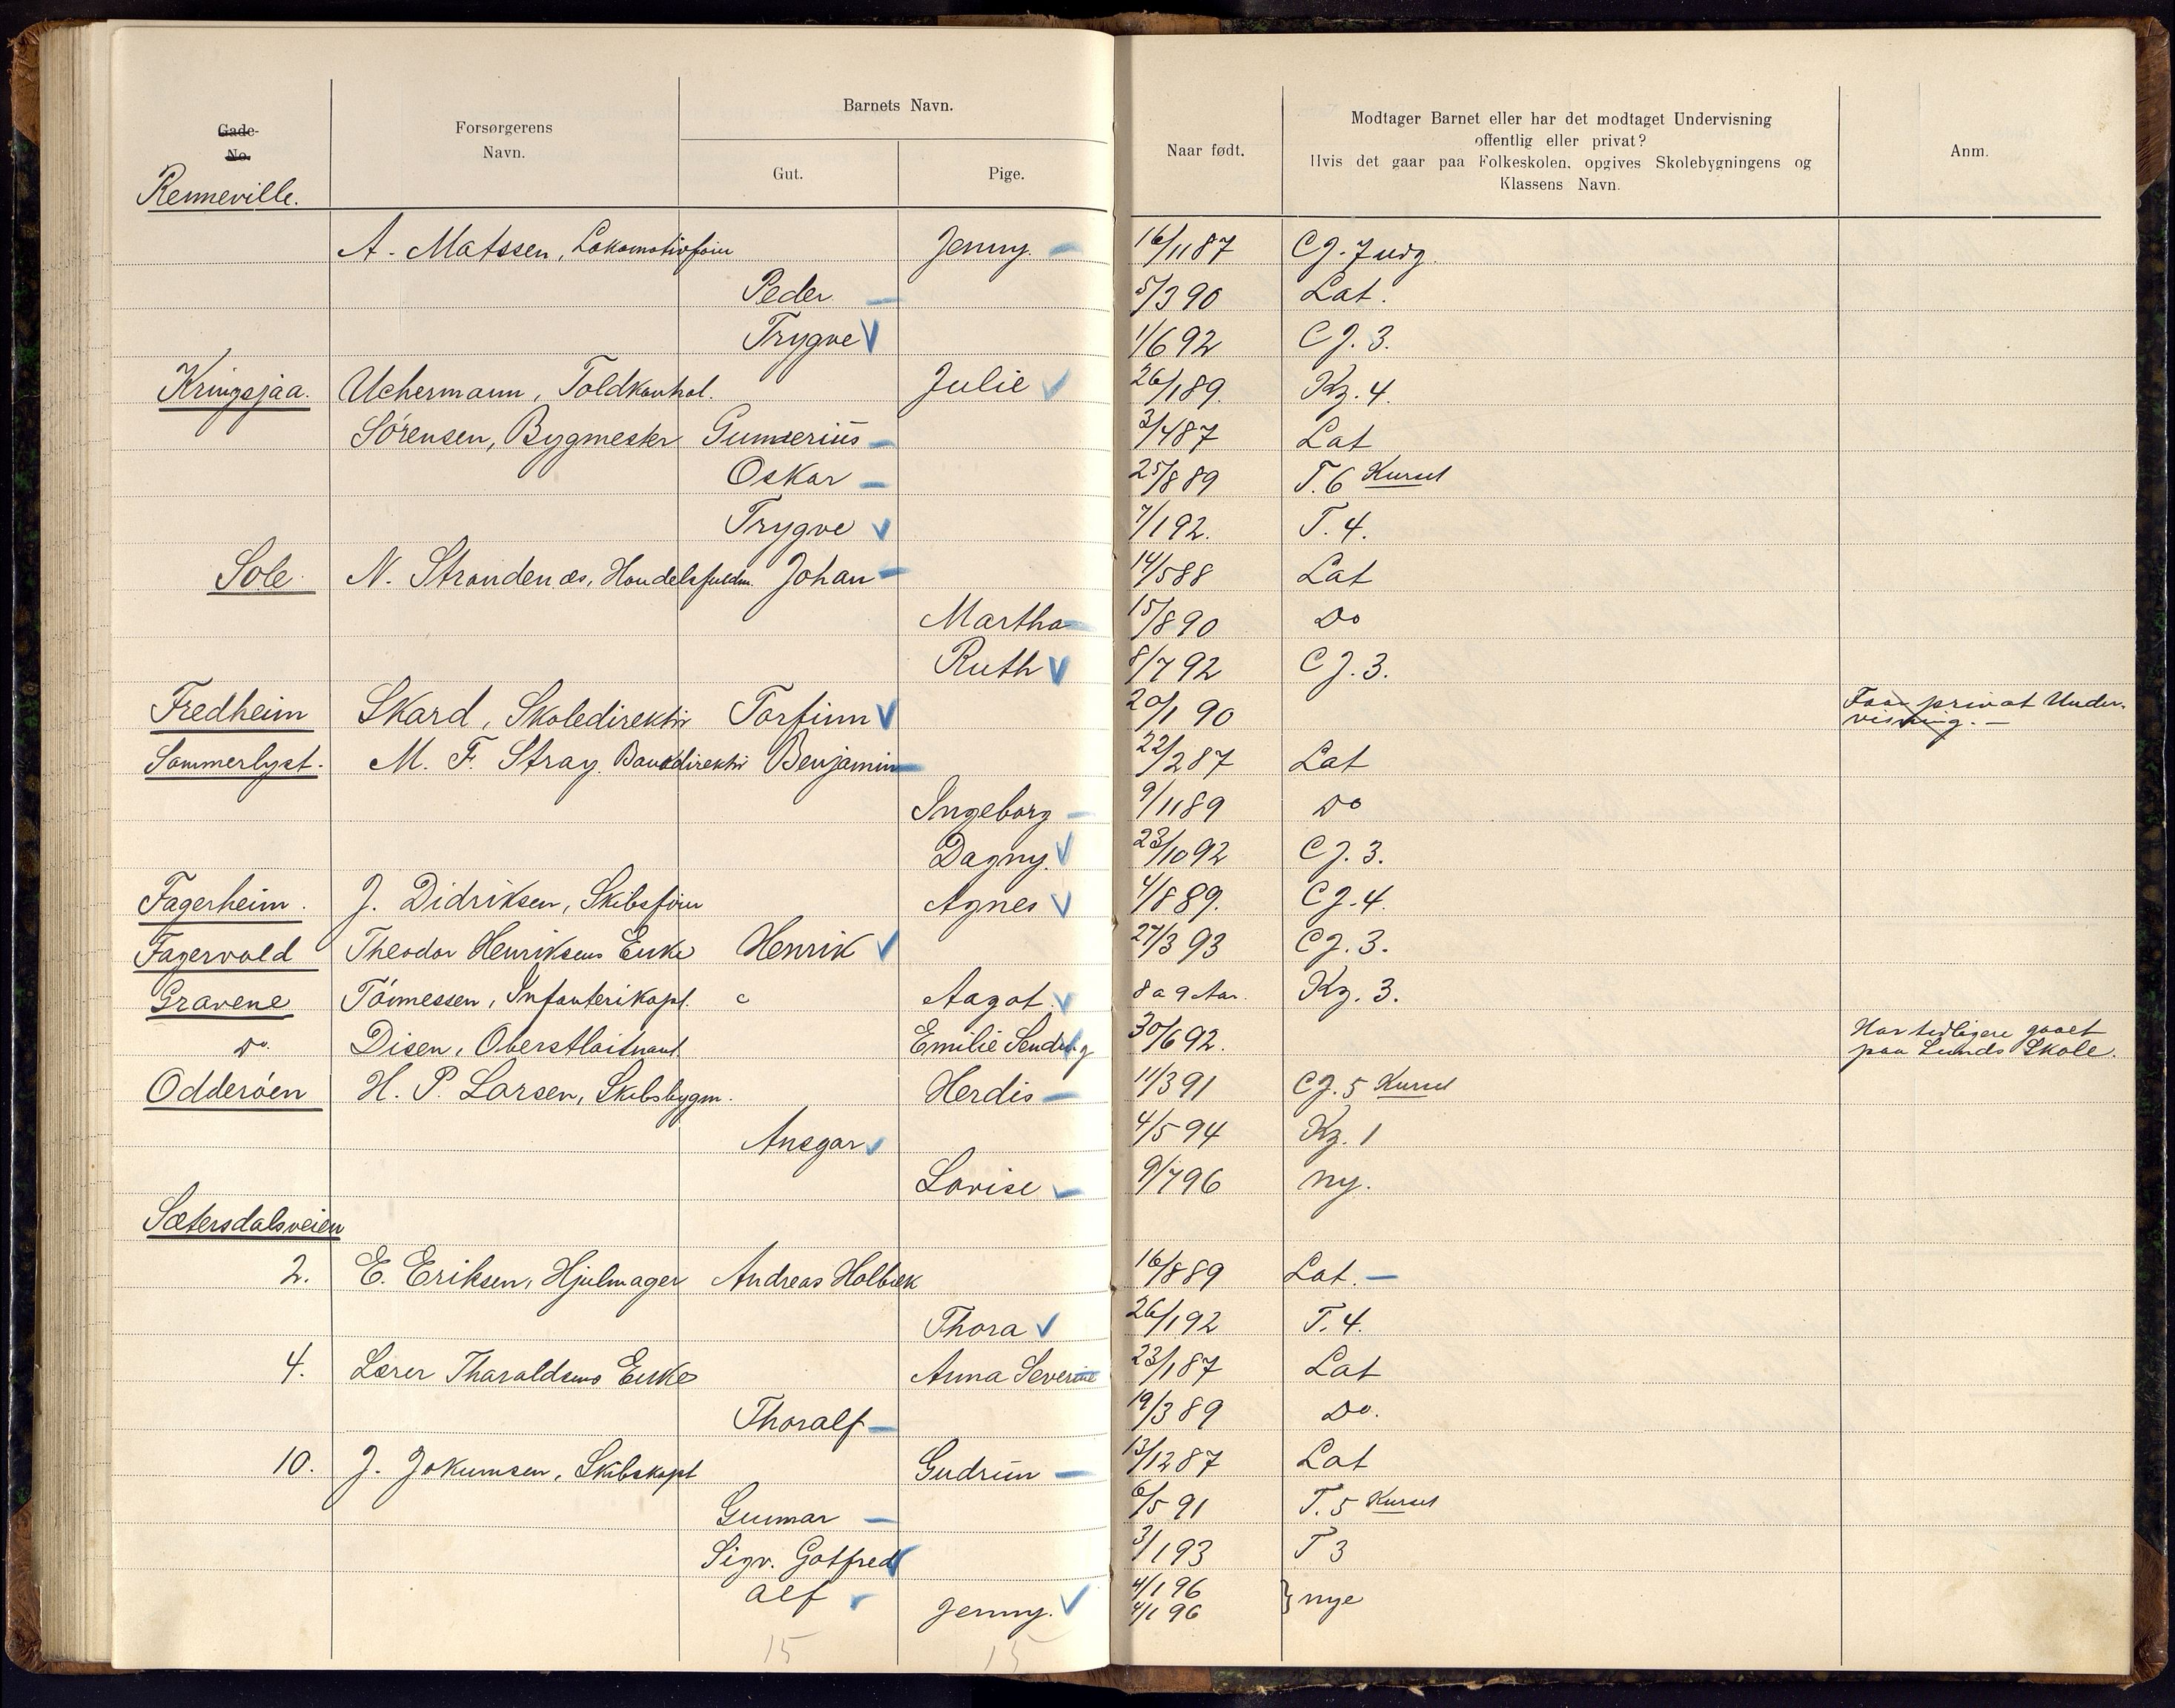 Barnets Navn.
Gade-
No.
Forsørgerens
Navn.
Gut.
Pige.
Naar født.
Modtager Barnet eller har det modtaget Undervisning
offentlig eller privat?
Hvis det gaar paa Folkeskolen, opgives Skolebygningens og
Klassens Navn.
Anm.
Renneville.
A. Matssen, Lokomotivfører Jenny. 16/11 87 CJ. 7
Peder 5/3 90 Lat.
Trygve 1/6 92 CJ. 3.
Kringsjaa. Uchermann, Toldkontrol. Julie 26/1 89. Kg. 4.
Sörensen, Bygmester Gunverius 3/4 87 Lat
Oskar 25/8 89 T. 6 Kurset
Trygve 7/1 92. T. 4.
Sole N. Strandenæs, Handelsfuldm. Johan 14/5 88 Lat
Martha 15/8 90 Do
Ruth 8/7 92 CJ. 3.
Fredheim Skard, Skoledirektör Torfinn 20/1 90 Faar privat Under-
visning. —
Sommerlyst. M. F. Stray. Bankdirektör Benjamin 22/2 87 Lat
Ingeborg 9/11 89 Do
Dagny. 23/10 92 CJ. 3.
Fagerheim. J. Didriksen, Skibsförer Agnes 4/8 89. CJ. 4.
Fagervold Theodor Henriksens Enke Henrik 27/3 93 CJ. 3.
Gravene Tönnessen, Infanterikapt. Aagot. 8 a 9 Aar. Kg. 3.
Do. Disen, Oberstløitnant Emilie 30/6 92. Har tidligere gaaet
paa Lunds Skole.
Odderöen H. P. Larsen, Skibsbygm. Herdis 11/3 91 CJ. 5 Kurset
Ansgar 4/5 94 Kg. 1
Lovise 9/7 96 ny.
Sætersdalsveien
2. E. Eriksen, Hjulmager Andreas Holbæk 16/8 89 Lat. —
Thora 26/1 92 T. 4.
4. Lærer Tharaldsens Enke Anna Severine 23/1 87 Lat
Thoralf 19/3 89 Do.
10. J. Jokumsen, Skibskapt Gudrun 13/12 87 Lat
Gunnar 6/5 91 T. 5 Kurset
Sigv. Gotfred 3/1 93 T 3
Alf 4/1 96
Jenny. 4/1 96 } nye
15 15